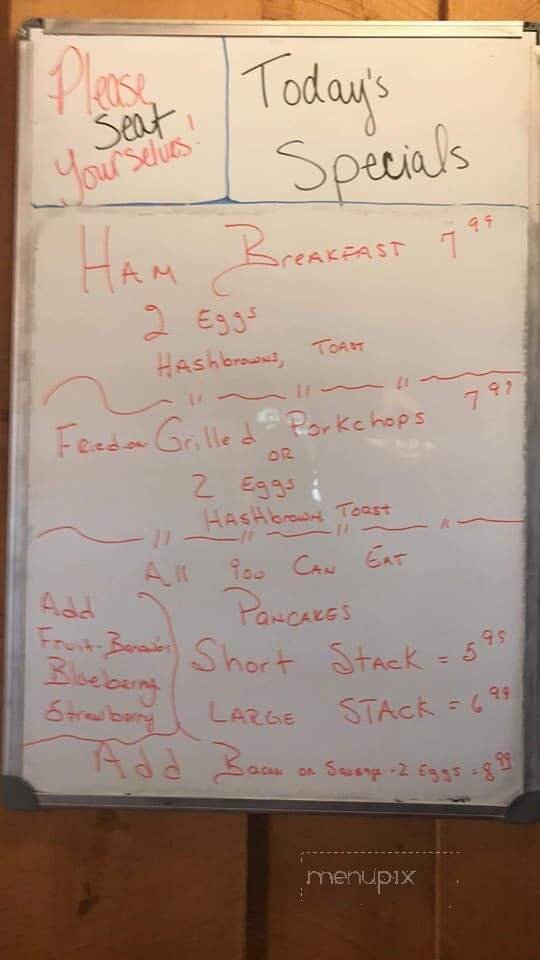 Please
Seat
Yourselves!
Today's
Specials
HAM BREAKFAST 7.99
2 Eggs
HAShbrowns, TOAST
Fried or Grilled Porkchops 7.99
OR
2 Eggs
HASHbrowns Toast
All you CAN EAT
PANCAKES
Add
Fruit-Bananas
Blueberry
Strawberry
Short STACK = 5.99
LARGE STACK = 6.99
Add Bacon or Sausage - 2 Eggs = 8.99
menupix